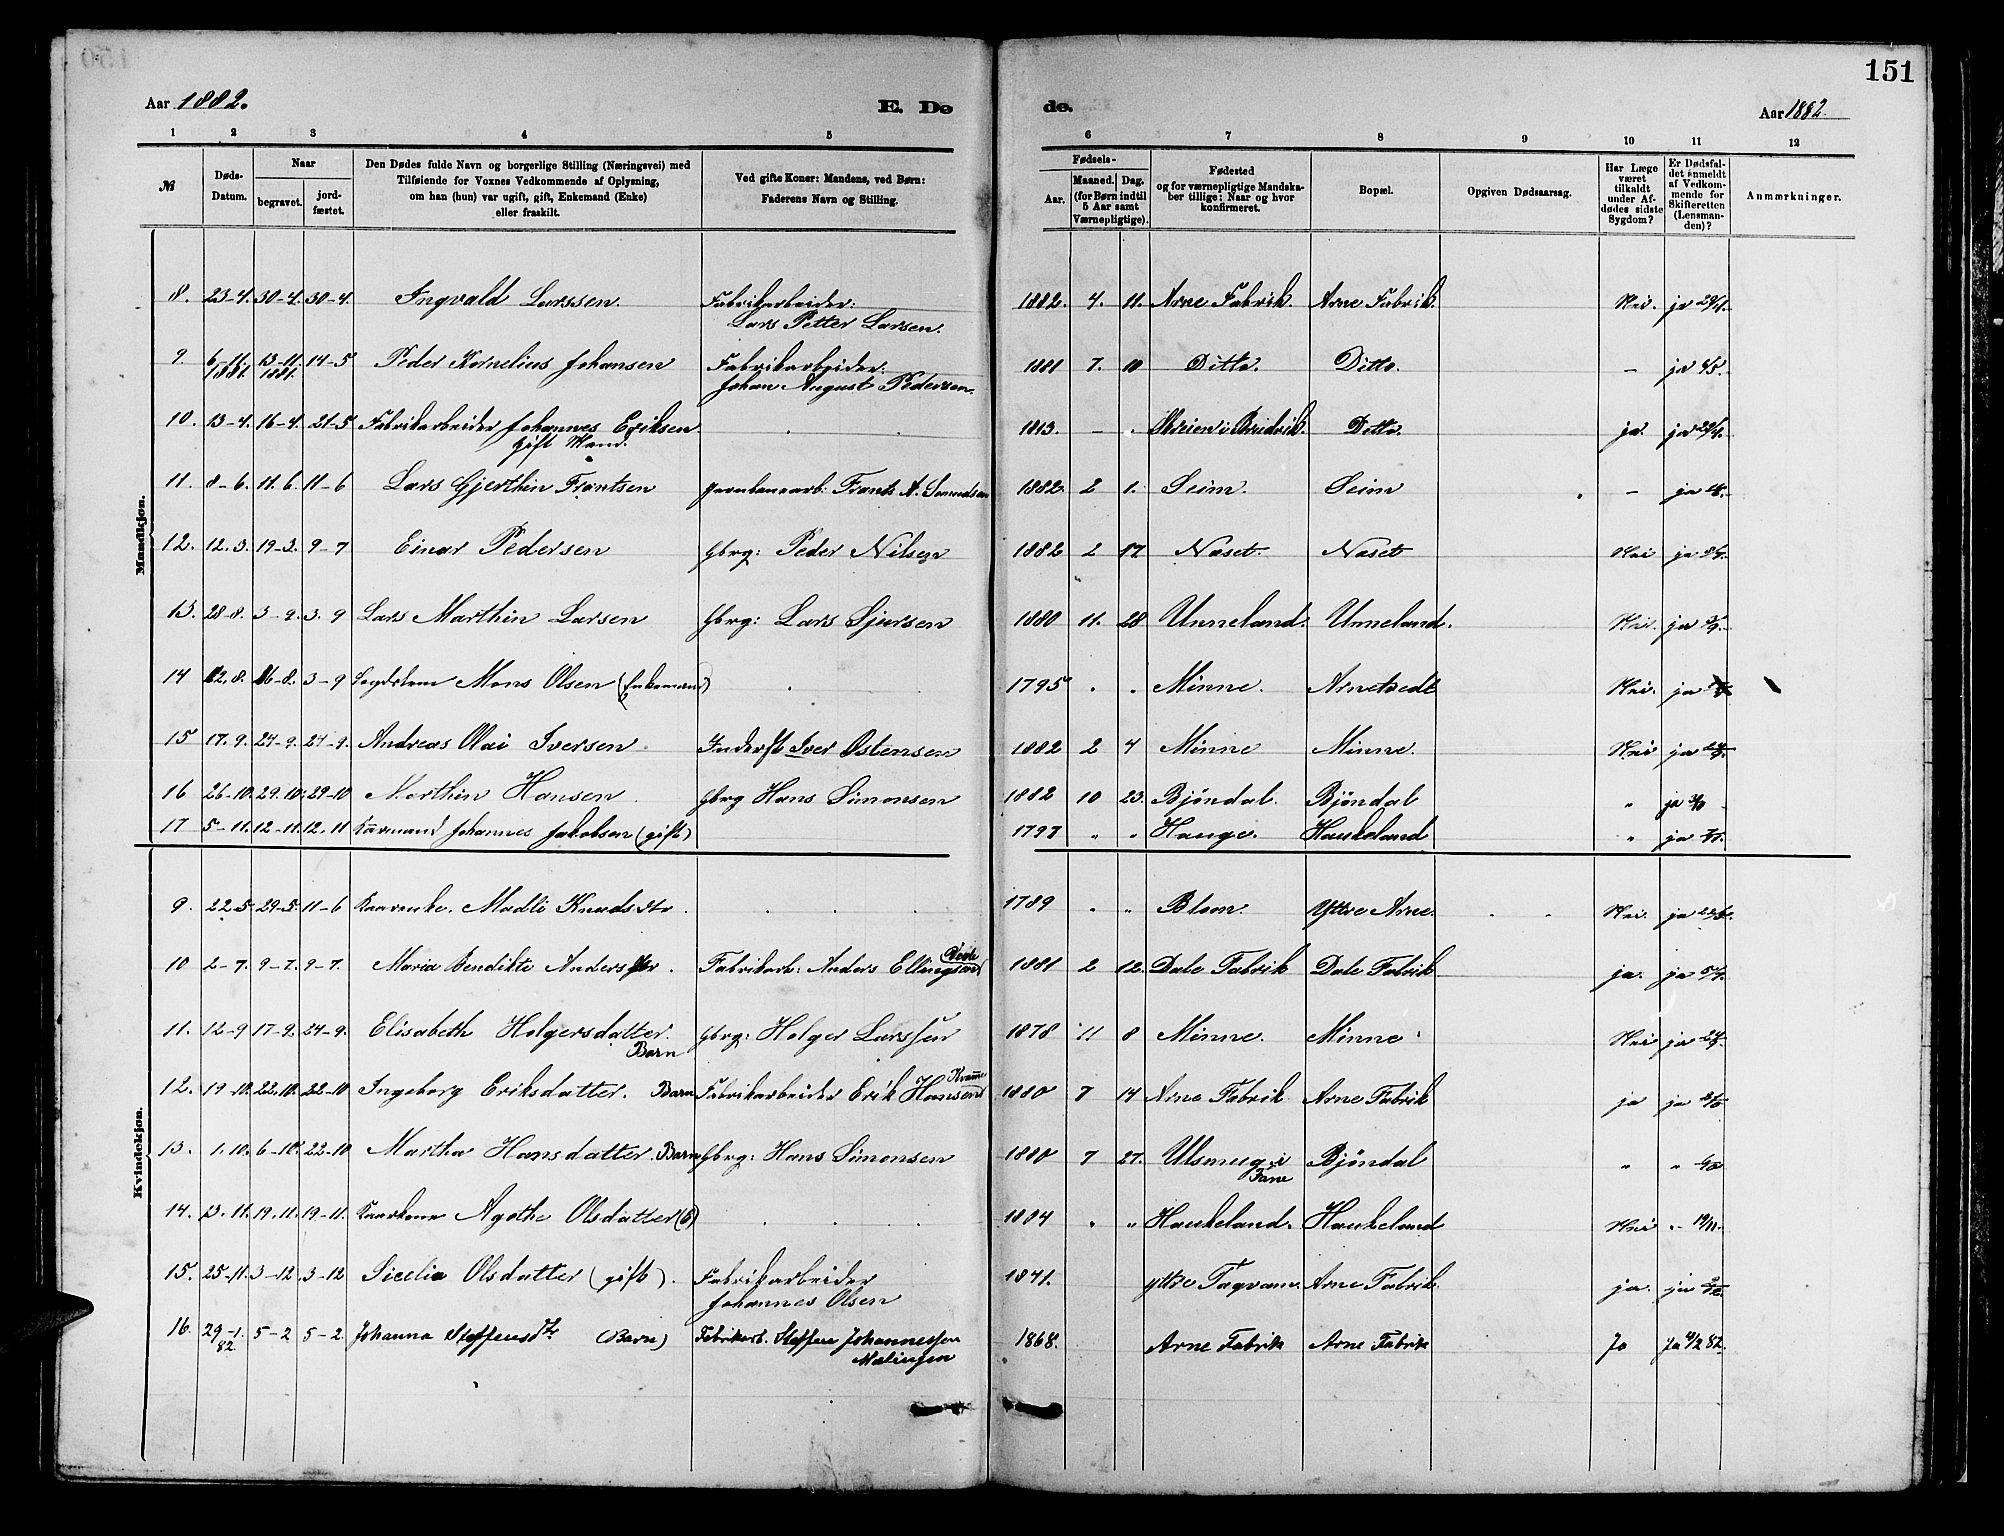 151
Aar 1882. E. Dø de. Aar 1882.
1 2 3 4 5 6 7 8 9 10 11 12
№ Døds-Datum. Naar begravet. jordfæstet. Den Dødes fulde Navn og borgerlige Stilling (Næringsvei) med Tilføiende for Voxnes Vedkommende af Oplysning, om han (hun) var ugift, gift, Enkemand (Enke) eller fraskilt. Ved gifte Koner: Mandens, ved Børn: Faderens Navn og Stilling. Fødsels- Aar. Maaned. Dag. (for Børn indtil 5 Aar samt Værnepligtige). Fødested og for værnepligtige Mandskaber tillige: Naar og hvor konfirmeret. Bopæl. Opgiven Dødsaarsag. Har Læge været tilkaldt under Afdødes sidste Sygdom? Er Dødsfaldet anmeldt af Vedkommende for Skifteretten (Lensmanden)? Anmærkninger.
Mandkjøn.
8. 23-4. 30-4. 30-4. Ingvald Larssen. Fabrikarbeider: 1882. 4. 11. Arne Fabrik. Arne Fabrik. Nei. ja
Lars Petter Larsen.
9. 6-11. 1881. 13-11. 1881. 14-5 Peder Kornelius Johansen Fabrikarbeider: 1881 7. 10 Ditto. Ditto. - ja 4/5.
Johan August Pedersen.
10. 13-4. 16-4. 21-5 Fabrikarbeider Johannes Eriksen 1813. - . Ditto. ja. ja
Gift Mand.
11. 8-6. 11. 6. 11-6 Lars Gjerthin Frantsen Frants A. 1882. 2 1. Seim. Seim - ja
12. 12. 3. 19-3. 9-7 Einar Pedersen Gbrg: Peder Nilsen 1882 2 17 Naset Naset Nei ja
13. 28-8. 3-9. 3. 9 Lars Marthin Larsen Gbrg: Lars Sjursen 1880 11. 28 Unneland. Unneland. Nei. ja
14 12. 8. 16-8. 3-9 Mons Olsen (Enkemand) 1795 . . Minne. Arnetvedt Nei. ja
15 17. 9. 24-9. 24-9. Andreas Olai Iversen. Inderst Iver Ostensen 1882 2 4 Minne Minne. Nei ja
16 26-10. 29. 10. 29-10 Marthin Hansen. Gbrg Hans Simonsen 1882 10 23. Bjöndal. Bjöndal " ja
17 5-11. 12-11. 12. 11 Kaarmand Johannes Jakobsen (gift) 1797 " " Hauge. Haukeland " ja
Kvindekjøn.
9. 22-5 29-5. 11-6 Kaarenke. Madli Knudsdtr. 1789 . " Ytre Arne. Nei. ja
10 2-7. 9-7. 9-7. Maria Bendikte Andersdtr. Fabrikarb: Anders Ellingsen 1881 2 12. Dale Fabrik Dale Fabrik ja. ja
11. 12-9 17-9. 24-9. Elisabeth Holgersdatter. Gbrg: Holger Larssen 1878 11 8 Minne. Minne Nei ja
Barn
12. 19-10. 22. 10. 22-10 Ingeborg Eriksdatter. Barn Fabrikarbeider Erik Hansen Kvamme 1880 7 14 Arne Fabrik. Arne Fabrik ja ja
13. 1. 10. 6-10. 22-10 Martha Hansdatter. Barn Gbrg: Hans Simonsen 1880 7 27. i Fane Bjöndal " "
14. 13. 11. 19. 11. 19-11. Agathe Olsdatter 1804 . " Haukeland. Haukeland Nei " 19/11.
15. 25-11. 3-12 3-12 Sicelia Olsdatter (gift). Fabrikarbeider 1841. ytre Arne Fabrik. ja. ja
Johannes Olsen
16. 29-1. 82. 5-2 5-2. Johanna Steffensdtr (Barn) Fabrikarb. Steffen Johannessen 1868. Arne Fabrik Arne Fabrik Ja Ja 4/2 82.